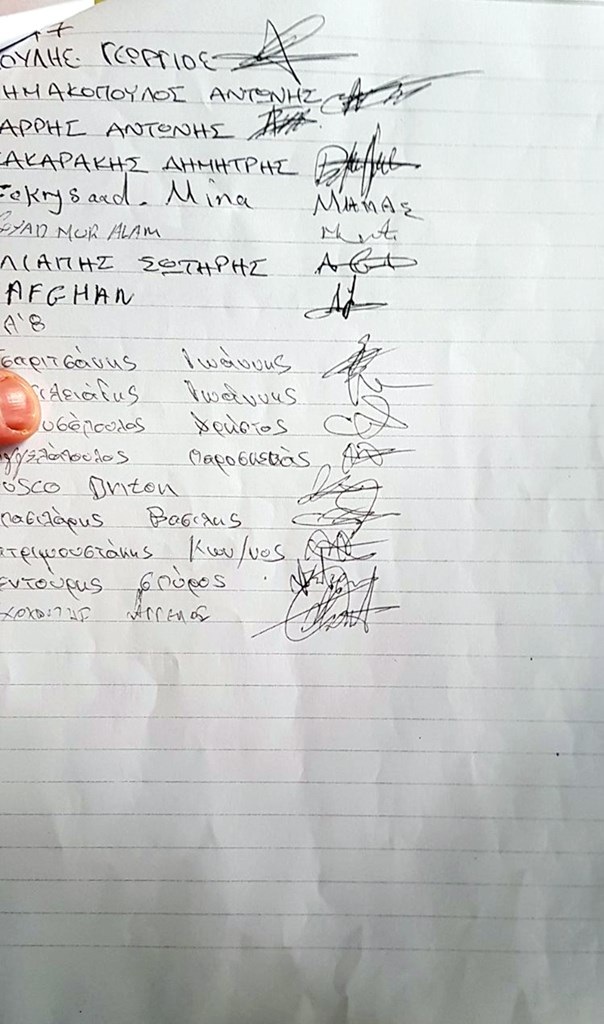 ΟΥΛΗΣ ΓΕΩΡΓΙΟΣ
ΗΜΑΚΟΠΟΥΛΟΣ ΑΝΤΩΝΗΣ
ΑΡΡΗΣ ΑΝΤΩΝΗΣ
ΑΚΑΡΑΚΗΣ ΔΗΜΗΤΡΗΣ
Mina ΜΗΝΑΣ
NUR ALAM
ΛΙΑΠΗΣ ΣΩΤΗΡΗΣ
AFGHAN
Α'8
σαριτσάνης Ιωάννης
ελειάδης Ιωάννης
υσόπουλος Χρήστος
γγελόπουλος Παρασκευάς
osco Driton
πασιλάρης Βασίλης
ατριμουστάκης Κων/νος
εντούρης Σπύρος
ΑΓΓΕΛΟΣ